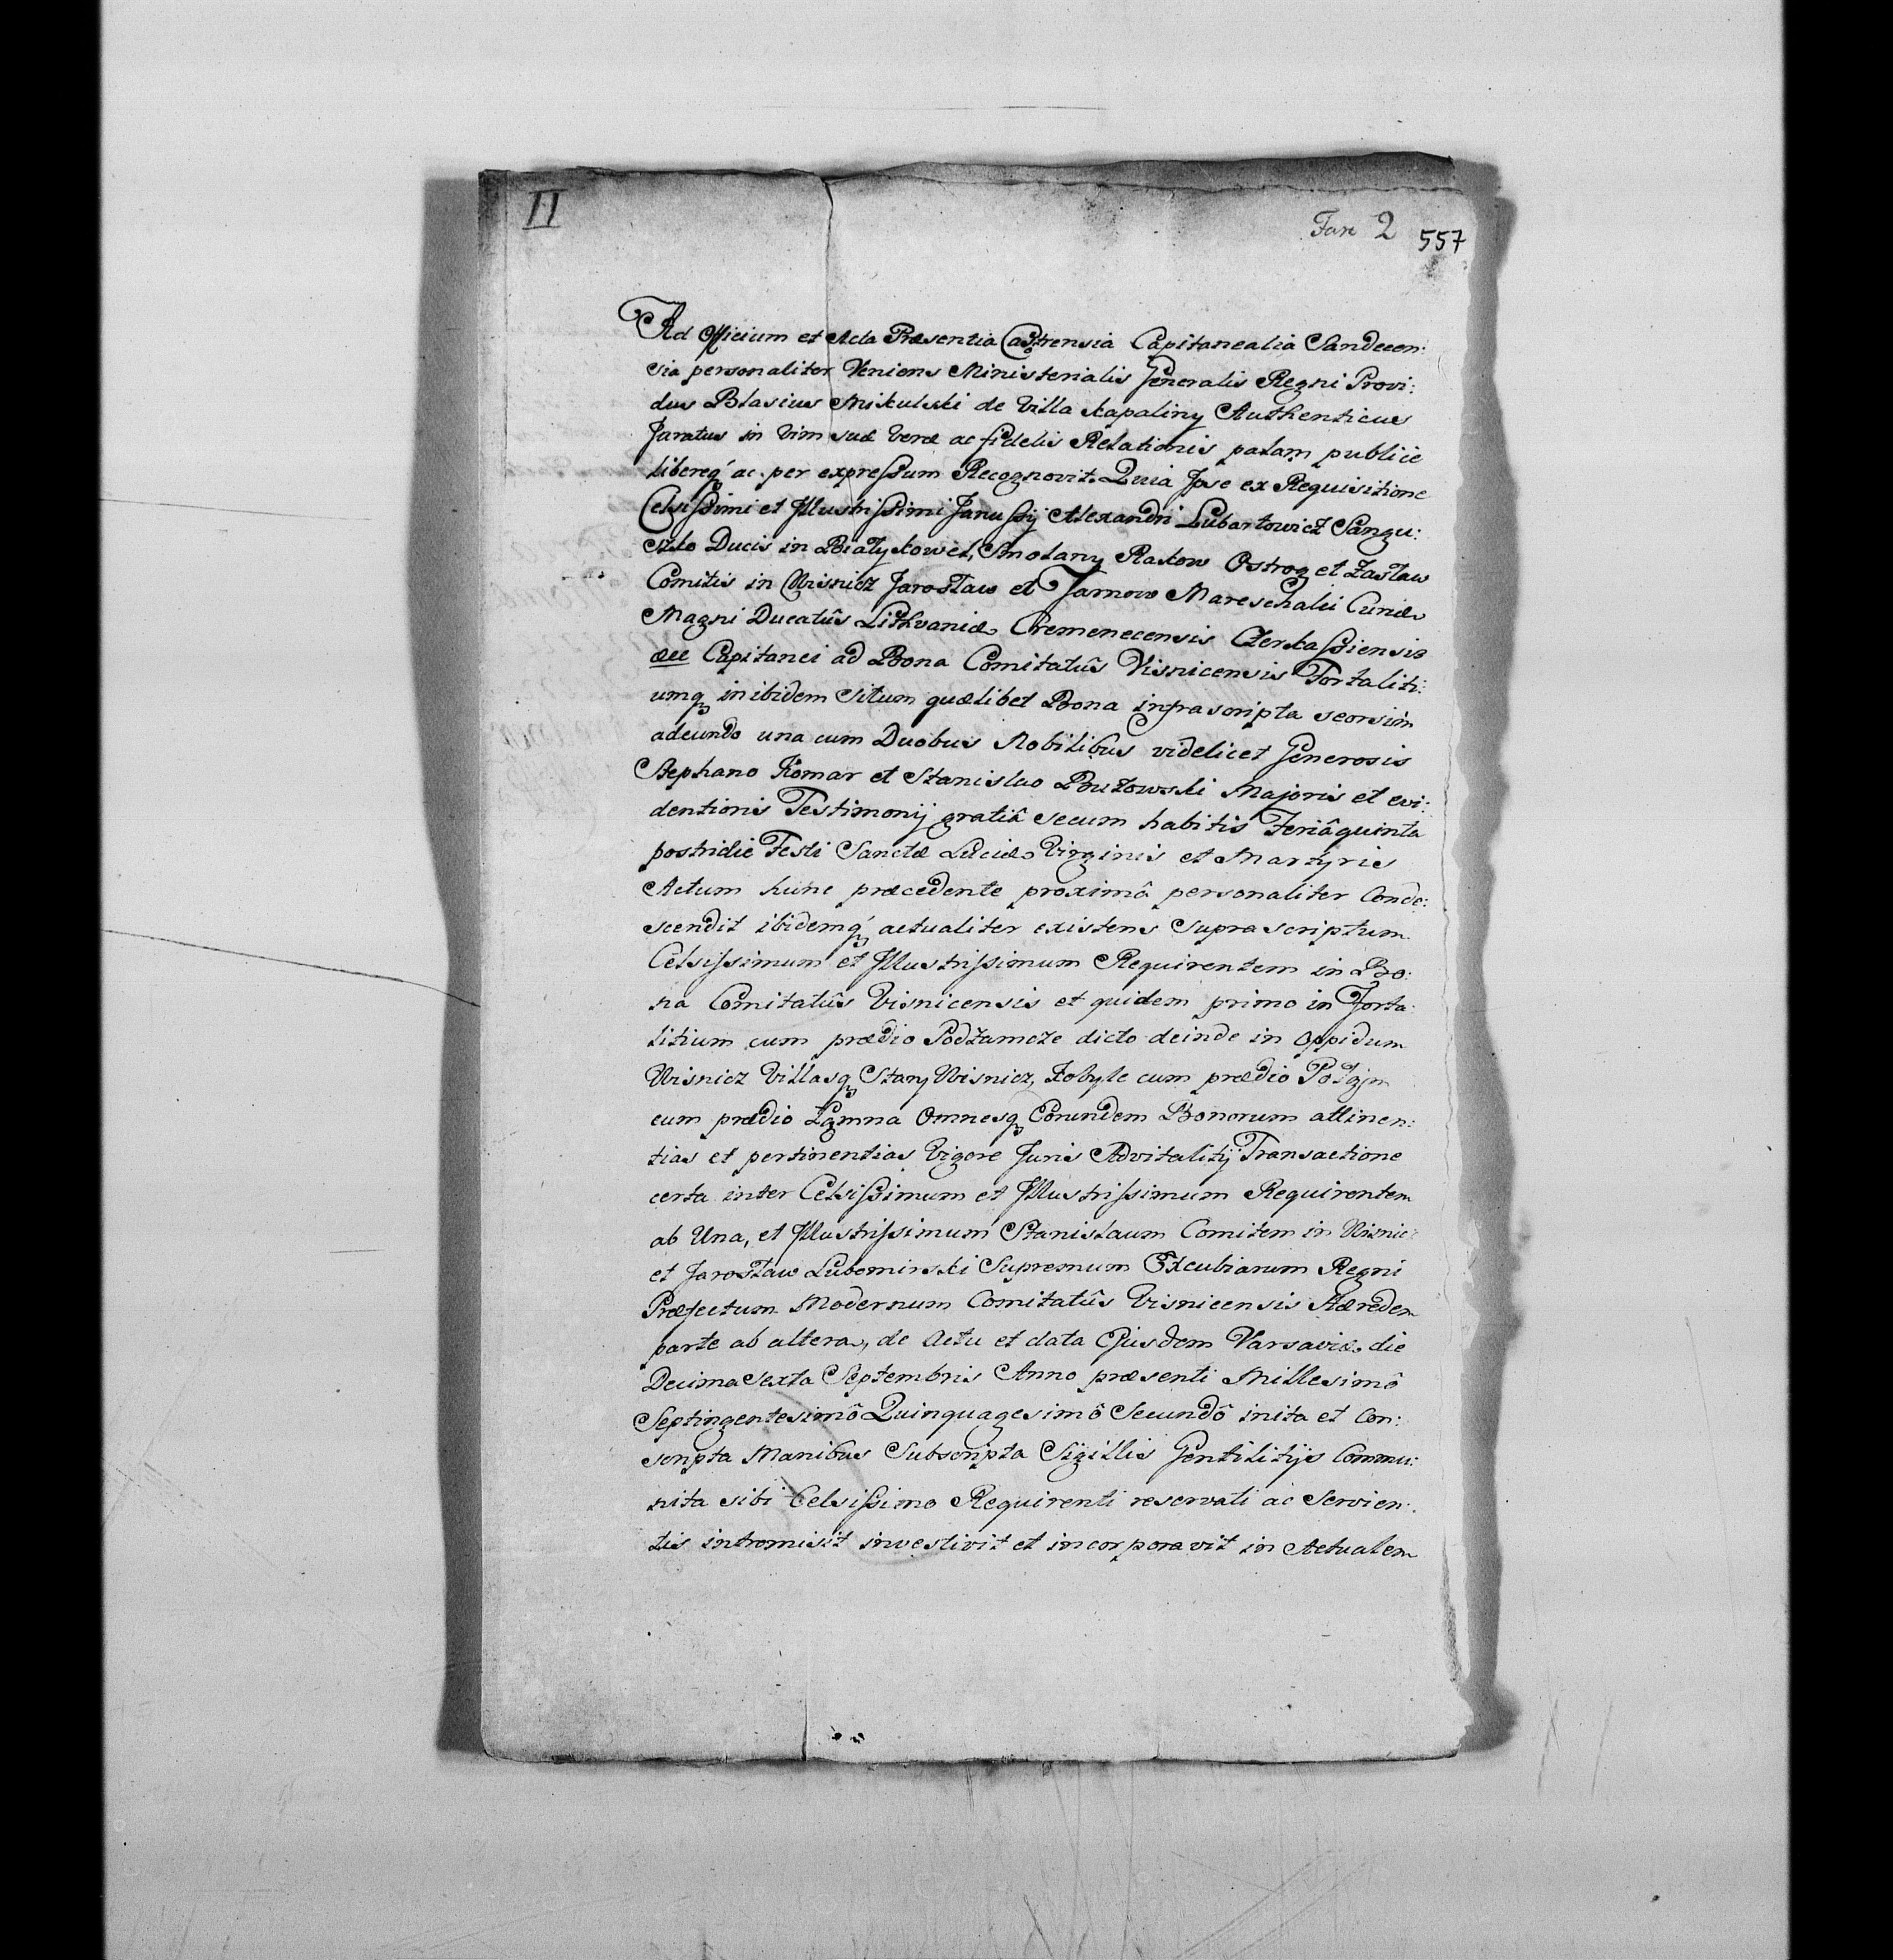 II
Fan 2 557
Ad Officium et Acta Præsentia Castrensia Capitanealia Sandecen:
sia personaliter Veniens Ministerialis Generalis Regni Provi:
dus Blasius Mikulski de Villa Kapaliny Authenticus
Juratus in Vim suæ Veræ ac fidelis Relationis palam publice
libereq́ ac per expreſsum Recognovit. Quia Ipse ex Requisitione
Celsiſsimi et Illustriſsimi Januſsÿ Alexandri Lubartowicz Sangu:
szko Ducis in Białykowel, Smolany Rakow Ostrog et Zasław
Comitis in Wisnicz Jarosław et Tarnow Mareschalci Curiæ
Magni Ducatûs Lithvaniæ Cremenecensis Czerkaſsiensis
æcc Capitanei ad Bona Comitatûs Visnicensis Fortaliti:
umq inibidem Situm quælibet Bona infrascripta seorsim
adeundo una cum Duobus Nobilibus videlicet Generosis
Stephano Komar et Stanislao Butowski Majoris et evi:
dentioris Testimonÿ gratiâ secum habitis Feriâ quinta
postridie Festi Sanctæ Luciæ Virginis et Martyris
Actum hunc præcedente proximô personaliter Conde:
scendit ibidemq́ actualiter existens Suprascriptum
Celsiſsimum et Illustriſsimum Requirentem in Bo:
na Comitatûs Visnicensis et quidem primo in Forta:
litium cum prædio Podzamcze dicto deinde in Oppidum
Wisnicz Villasq Stary Wisnicz, Kobyle cum prædio
cum prædio Łomna Omnesq Eorundem Bonorum attinen:
tias et pertinentias Vigore Juris Advitalitÿ Transactione
certa inter Celsiſsimum et Illustriſsimum Requirentem
ab Una, et Illustriſsimum Stanislaum Comitem in Wisnic
et Jarosław Lubomirski Supremum Excubiarum Regni
Præfectum Modernum Comitatûs Visnicensis Hæredem
parte ab altera, de Actu et data Ejusdem Varsaviæ die
Decima Sexta Septembris Anno præsenti Millesimô
Septingentesimô Quinquagesimô Secundô inita et Con:
scripta Manibus Subscripta Sigillis Gentilitÿs Commu:
nita sibi Celsiſsimo Requirenti reservati ac Servien:
tis intromisit investivit et incorporavit in Actualem